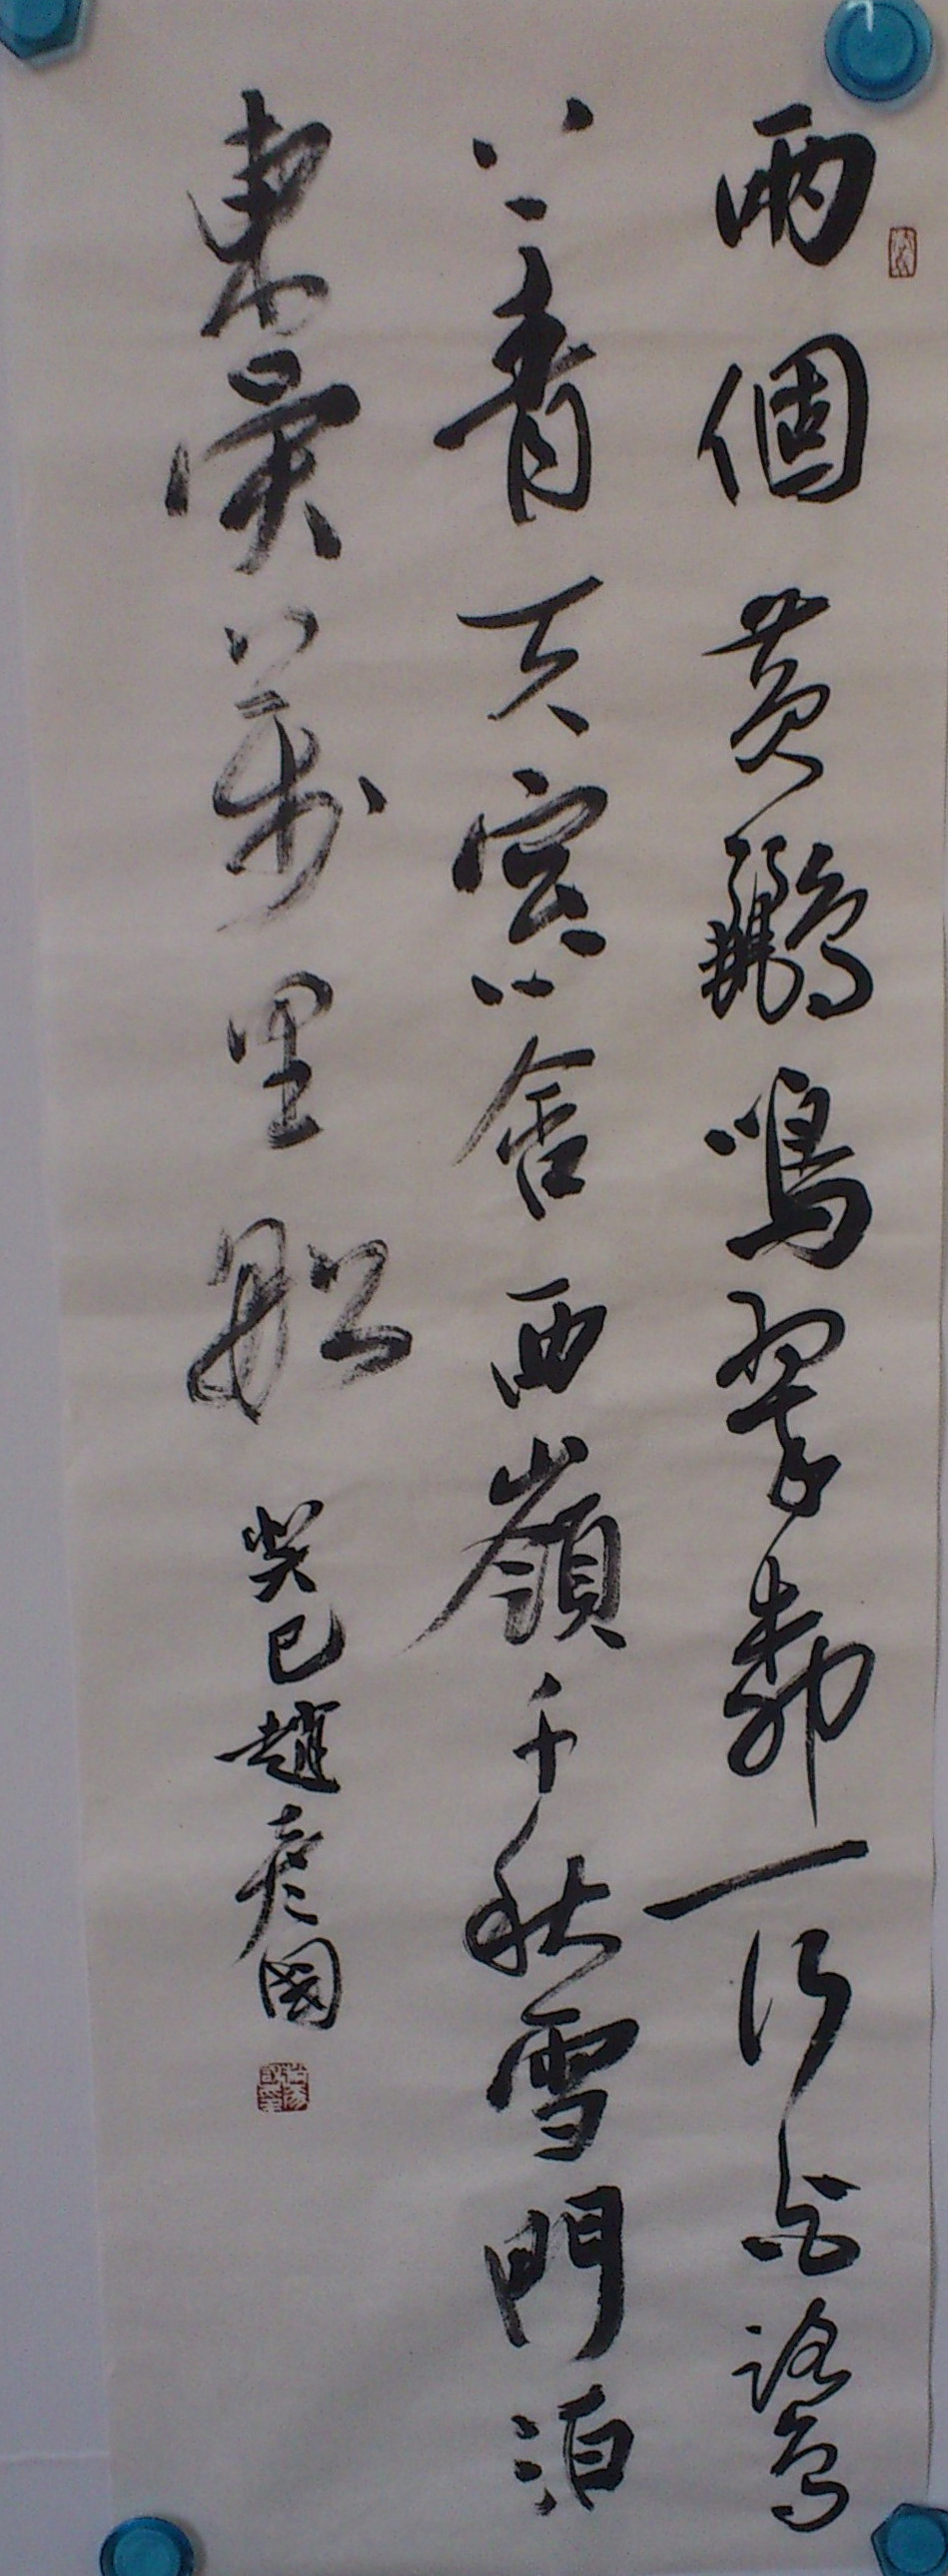 兩個黃鸝鳴翠柳一行白鷺
上青天窗含西嶺千秋雪門泊
東吳萬里船 癸巳趙彥國